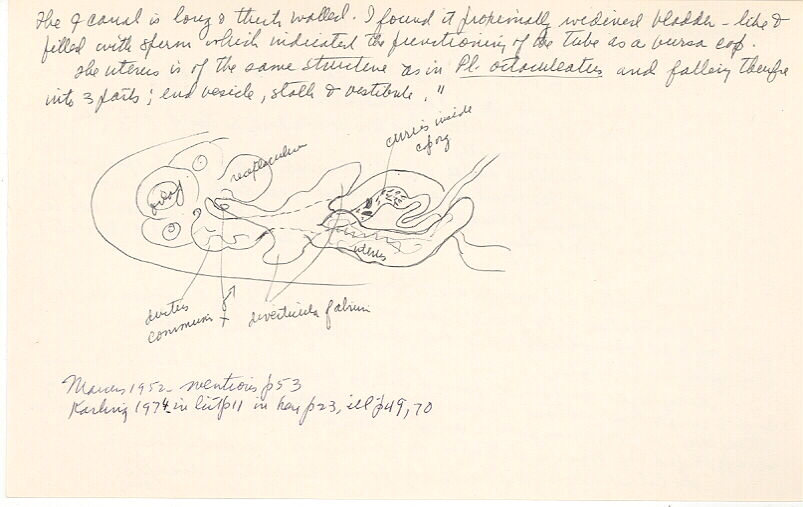 The ♀ canal is long & thick walled. I found it proximally widened bladder-like &
filled with sperm which indicated the functioning of the tube as a bursa cop.
The uterus is of the same structure as in Pl. octoculeatus and falling therefore
into 3 parts; end vesicle, stalk & vestibule."
cirrus inside
cop org
receptaculum
ovary
uterus
ductus
communis
diverticula
Marcus 1952 - mentions p53
Karling 1974 in list p11 in key p23, ill p49, 70